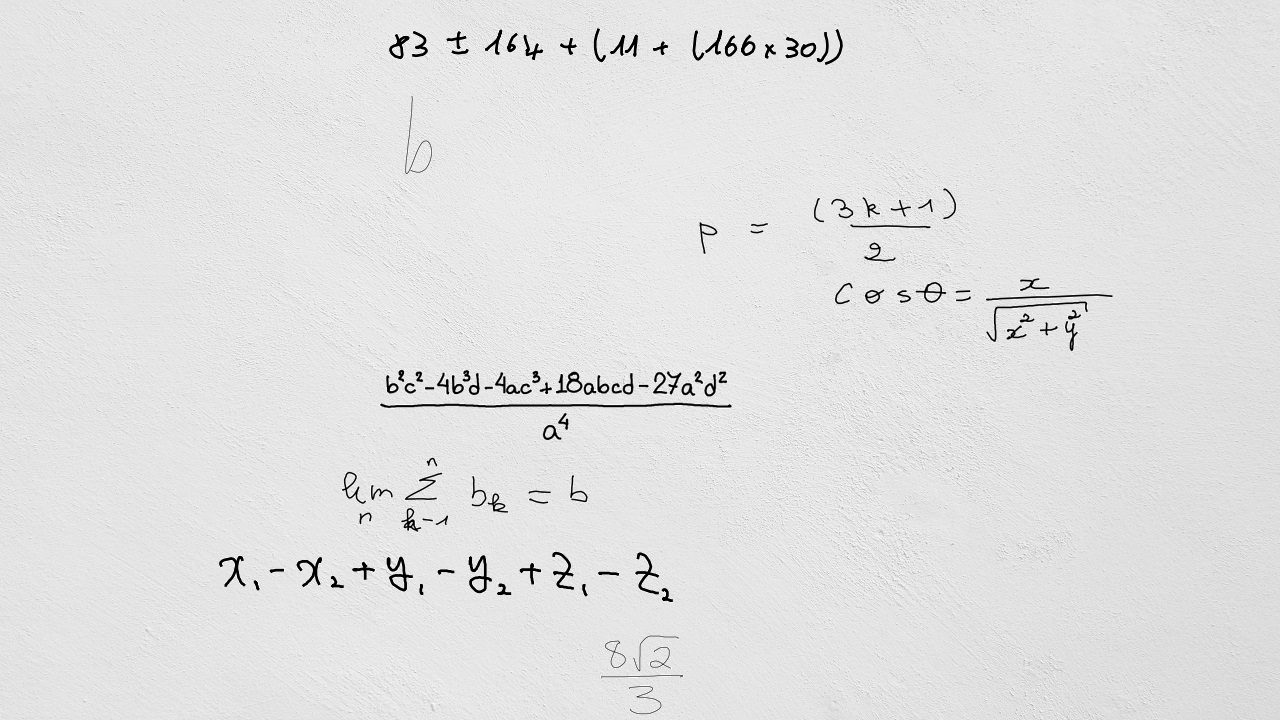 83 ± 164 + (11 + (166 × 30))
b
p = (3k+1)/2
cos θ = x/√(x²+y²)
(b²c²-4b³d-4ac³+18abcd-27a²d²)/a⁴
lim_n ∑_{k-1}^{n} b_k = b
x₁ - x₂ + y₁ - y₂ + z₁ - z₂
8√2/3